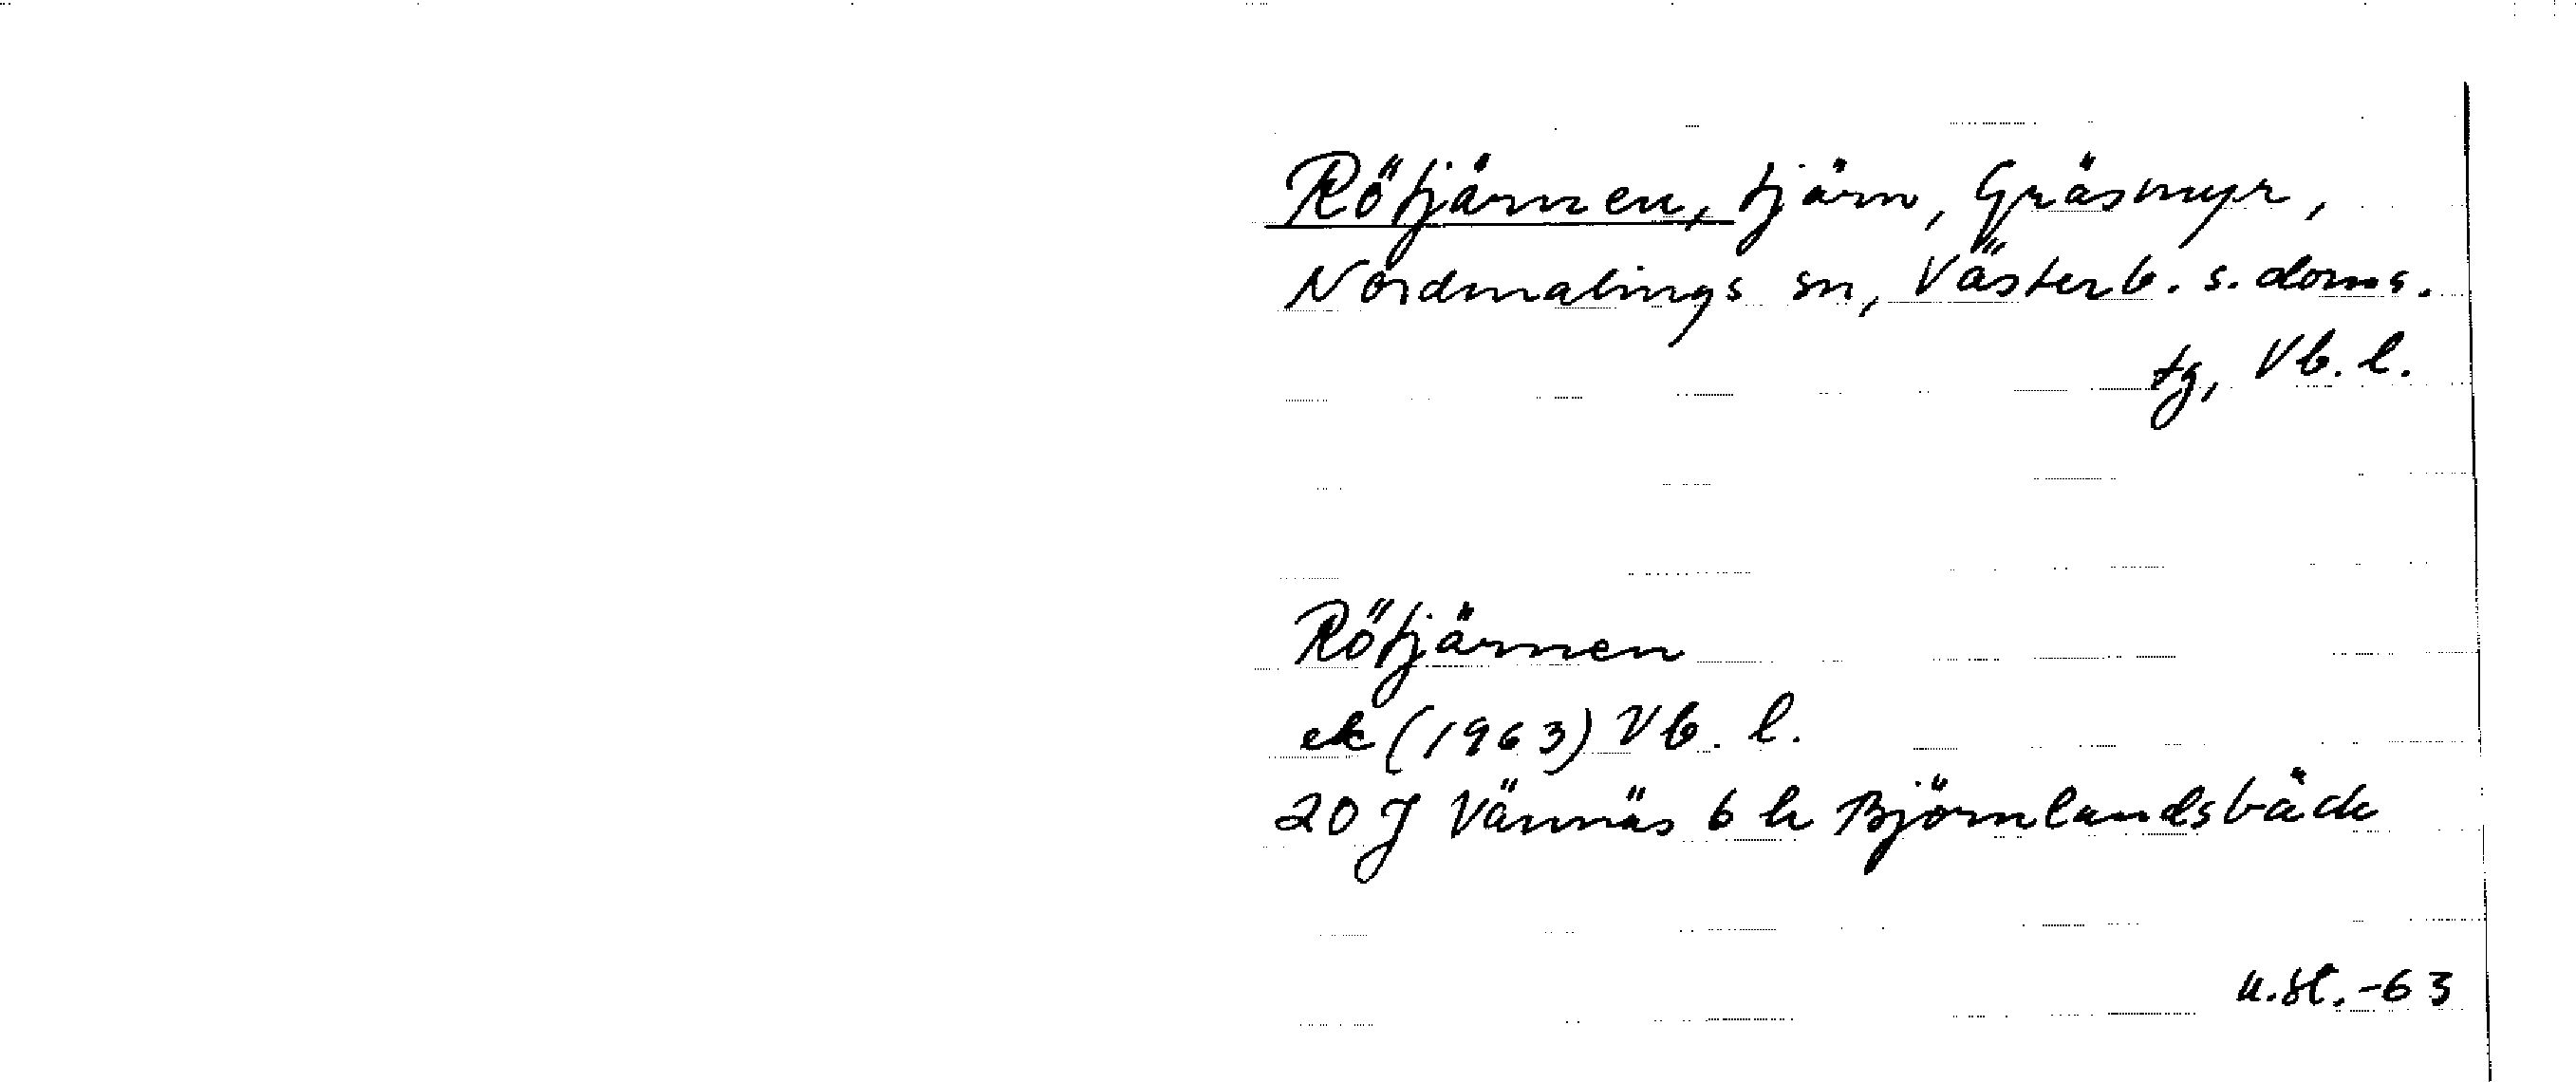 Rötjärnen, tjärn, Gräsmyr,
Nordmalings sn, Västerb. s. doms.
tg, Vb. l.
Rötjärnen
ek (1963) Vb. l.
20 J Vännäs 6 h Björnlandsbäck
u.st. -63